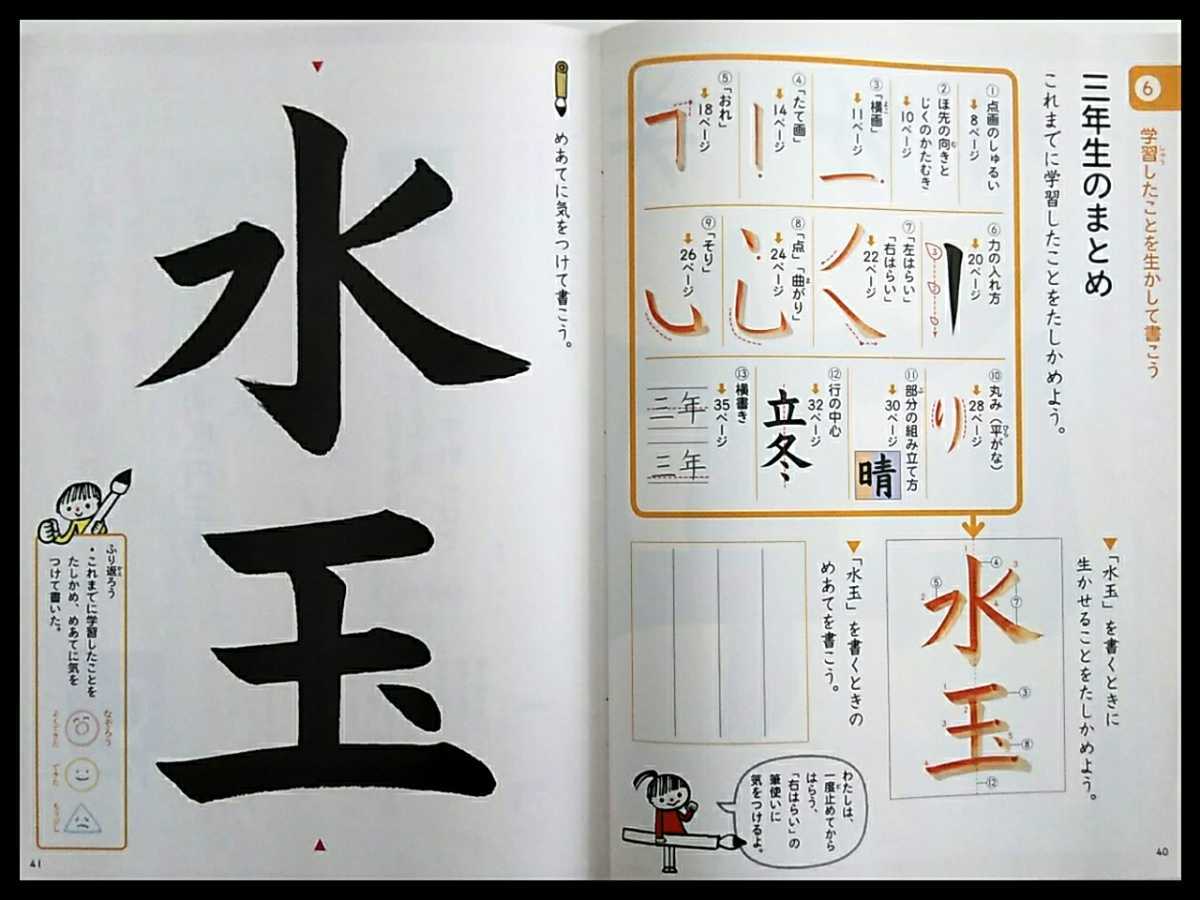 6
学習したことを生かして書こう
三年生のまとめ
これまでに学習したことをたしかめよう。
①点画のしゅるい
8ページ
②ほ先の向きと
じくのかたむき
10ページ
③「横画」
11ページ
④「たて画」
14ページ
⑤「おれ」
18ページ
⑥力の入れ方
20ページ
⑦「左はらい」
「右はらい」
22ページ
⑧「点」「曲がり」
24ページ
⑨「そり」
26ページ
⑩丸み(平がな)
28ページ
り
⑪部分の組み立て方
30ページ
晴
⑫行の中心
32ページ
立冬
⑬横書き
35ページ
三年
三年
「水玉」を書くときに
生かせることをたしかめよう。
水玉
③
④
⑤
⑦
⑧
⑫
「水玉」を書くときの
めあてを書こう。
わたしは、
一度止めてから
はらう、
「右はらい」の
筆使いに
気をつけるよ。
40
めあてに気をつけて書こう。
水玉
ふり返ろう
・これまでに学習したことを
たしかめ、めあてに気を
つけて書いた。
なぞろう
よくできた
できた
もう少し
41